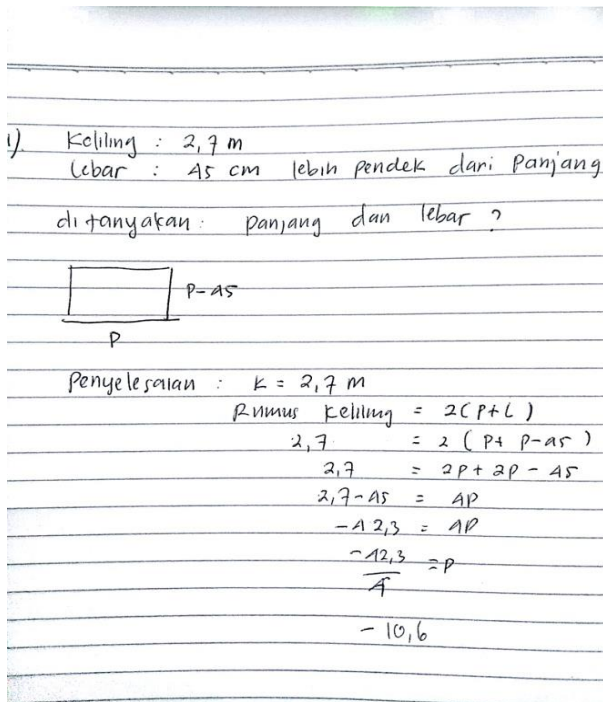 1) Keliling : 2,7 m
Lebar : 45 cm lebih pendek dari Panjang
ditanyakan : panjang dan lebar ?
P-45
P
Penyelesaian : K = 2,7 m
Rumus Keliling = 2(P+L)
2,7 = 2 (P+ P-45)
2,7 = 2P + 2P - 45
2,7-45 = 4P
-42,3 = 4P
-42,3/4 = P
- 10,6